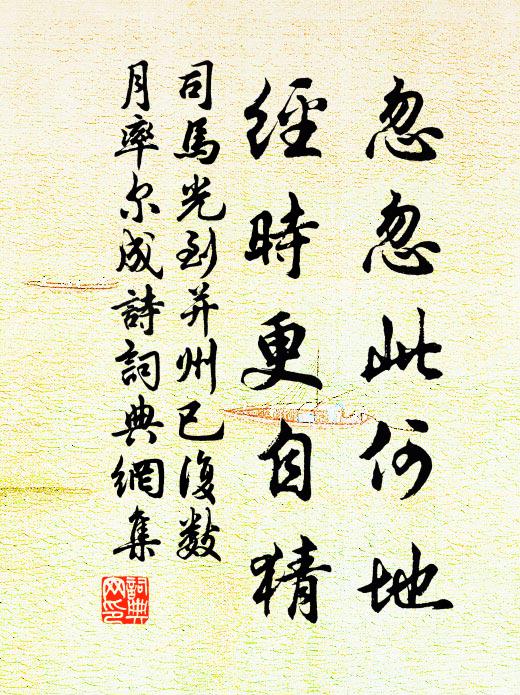 忽忽此何地
經時更自猜
司馬光到并州已復數
月率尔成詩詞典網集
詞典
网印